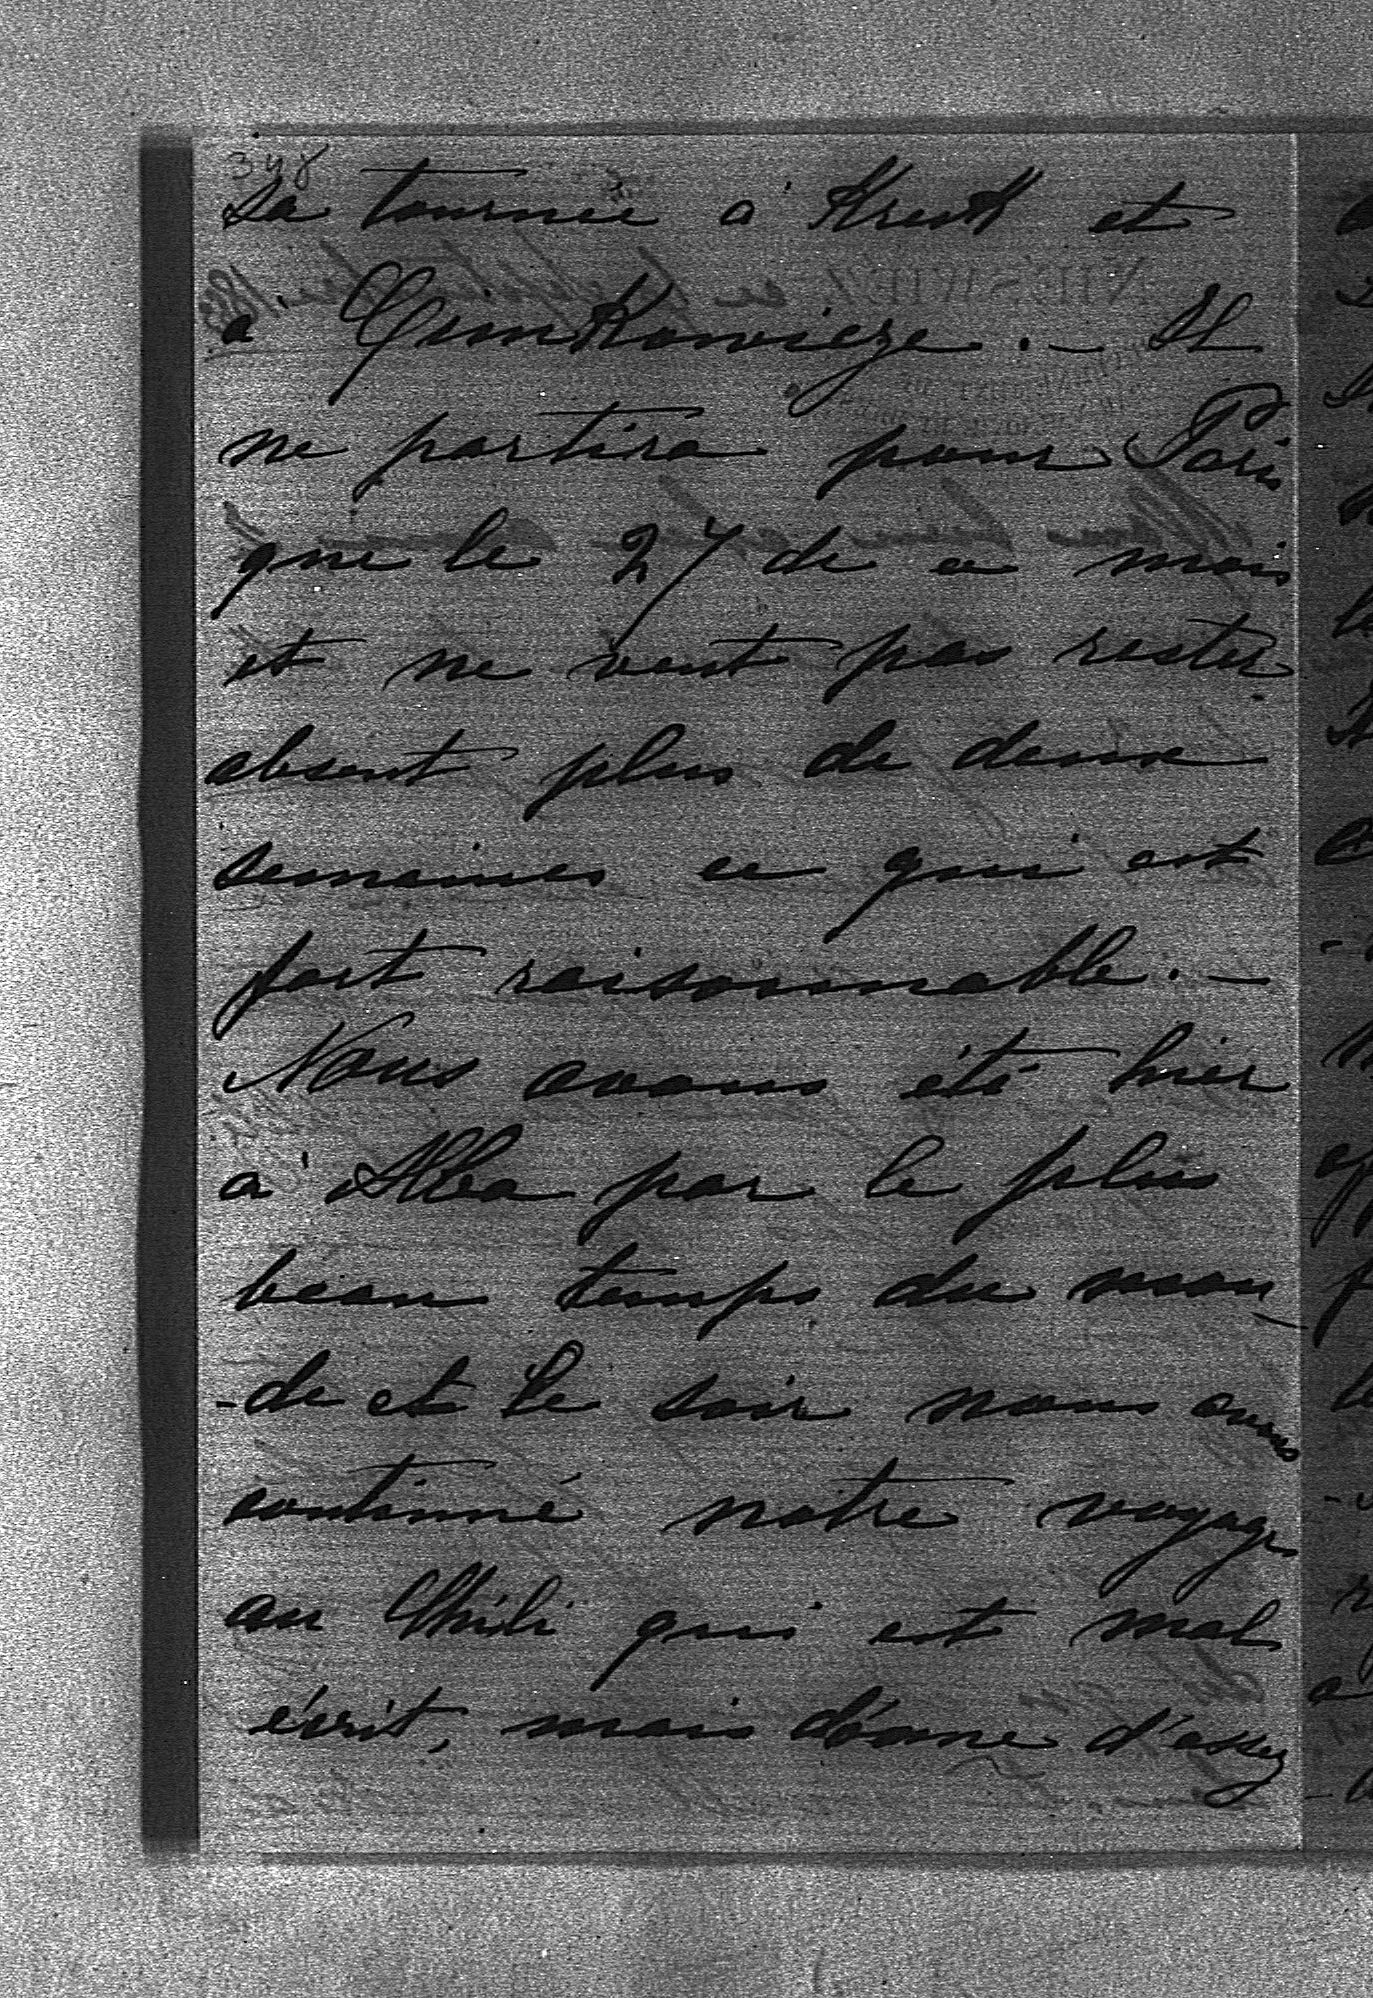 348
sa tournée à Kruk et
a Grinkowicze. — Il
ne partira pour Paris
que le 27 de ce mois
et ne veut pas rester
absent plus de deux
semaines ce qui est
fort raisonnable. —
Nous avons été hier
à Alba par le plus
beau temps du mon-
-de et le soir nous avons
continué notre voyage
au Chili qui est mal
écrit, mais donne d'assez